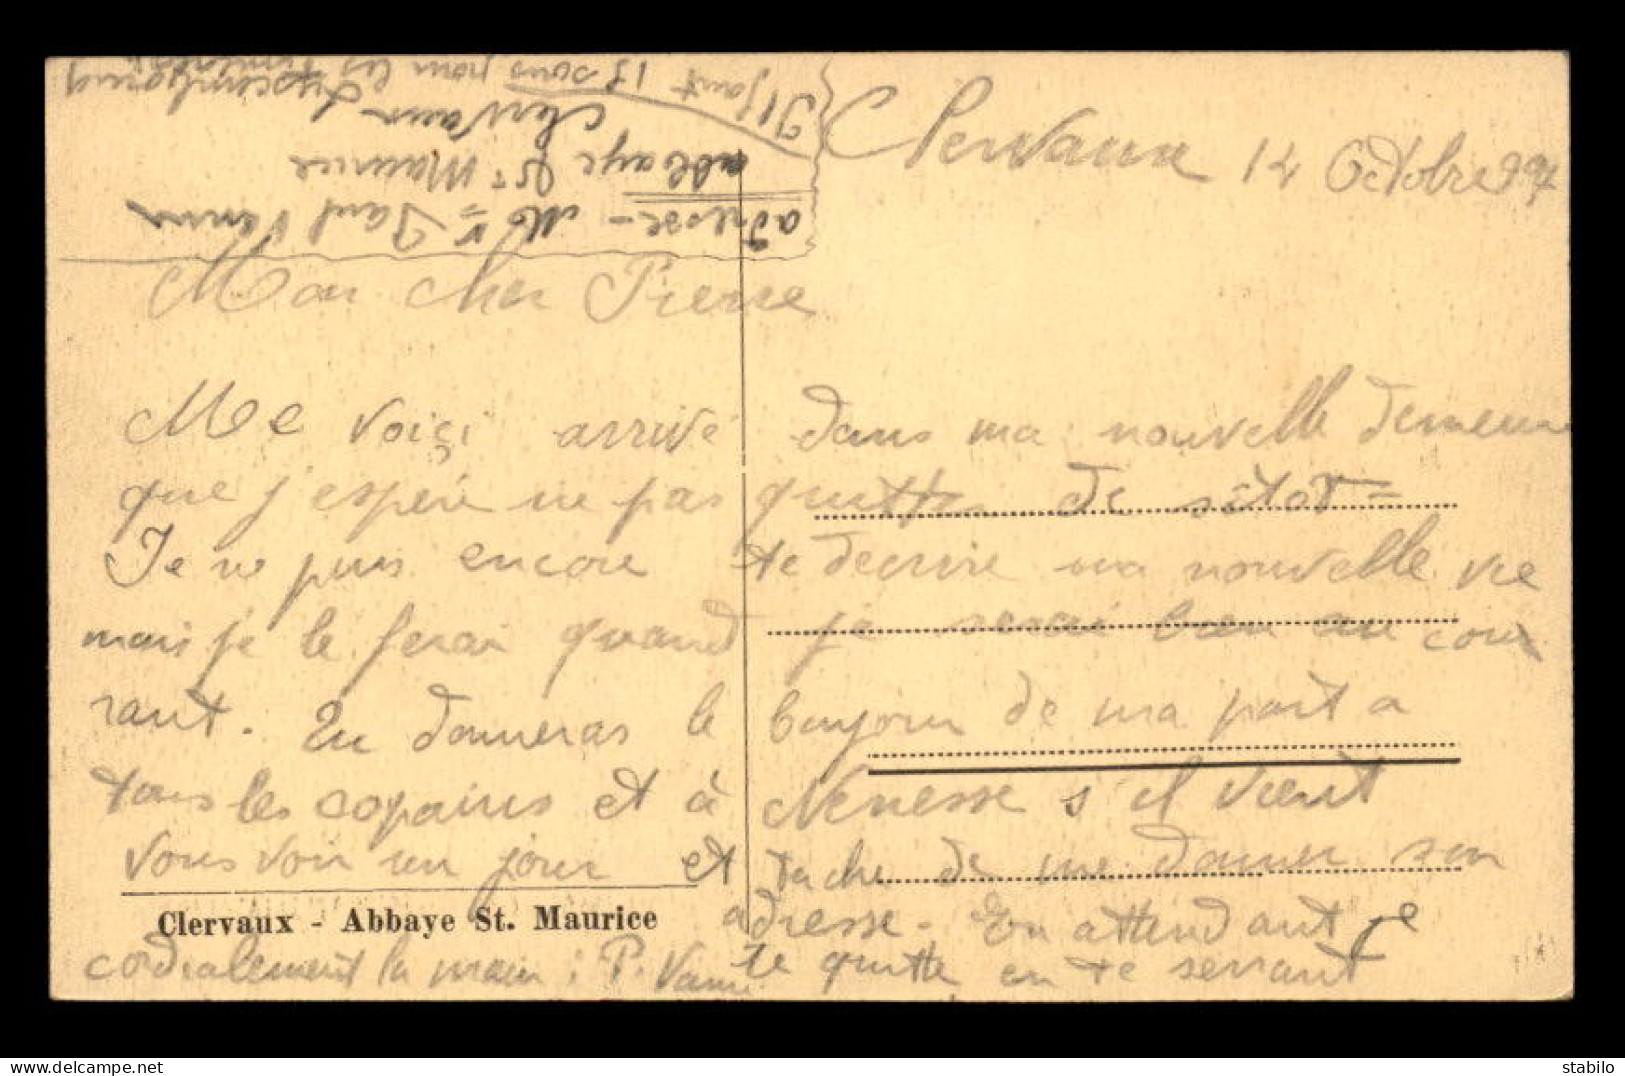 Clervaux 14 Octobre
Mon cher Pierre
Me voiçi arrivé dans ma nouvelle demeure
que j'espére ne pas quitter de sitot =
Je ne puis encore te decrire ma nouvelle vie
mais je le ferai quand je serai bien au cou
rant. Tu donneras le bonjour de ma part a
tous les copains et à Nenesse s'il vient
vous voir un jour et tache de me donner son
adresse. En attendant je
te quitte en te serrant
cordialement la main : P. Vann
Clervaux - Abbaye St. Maurice
adresse - Mr Paul Vann
abbaye St Maurice
Clervaux Luxembourg
Il faut 15 sous pour les timbres